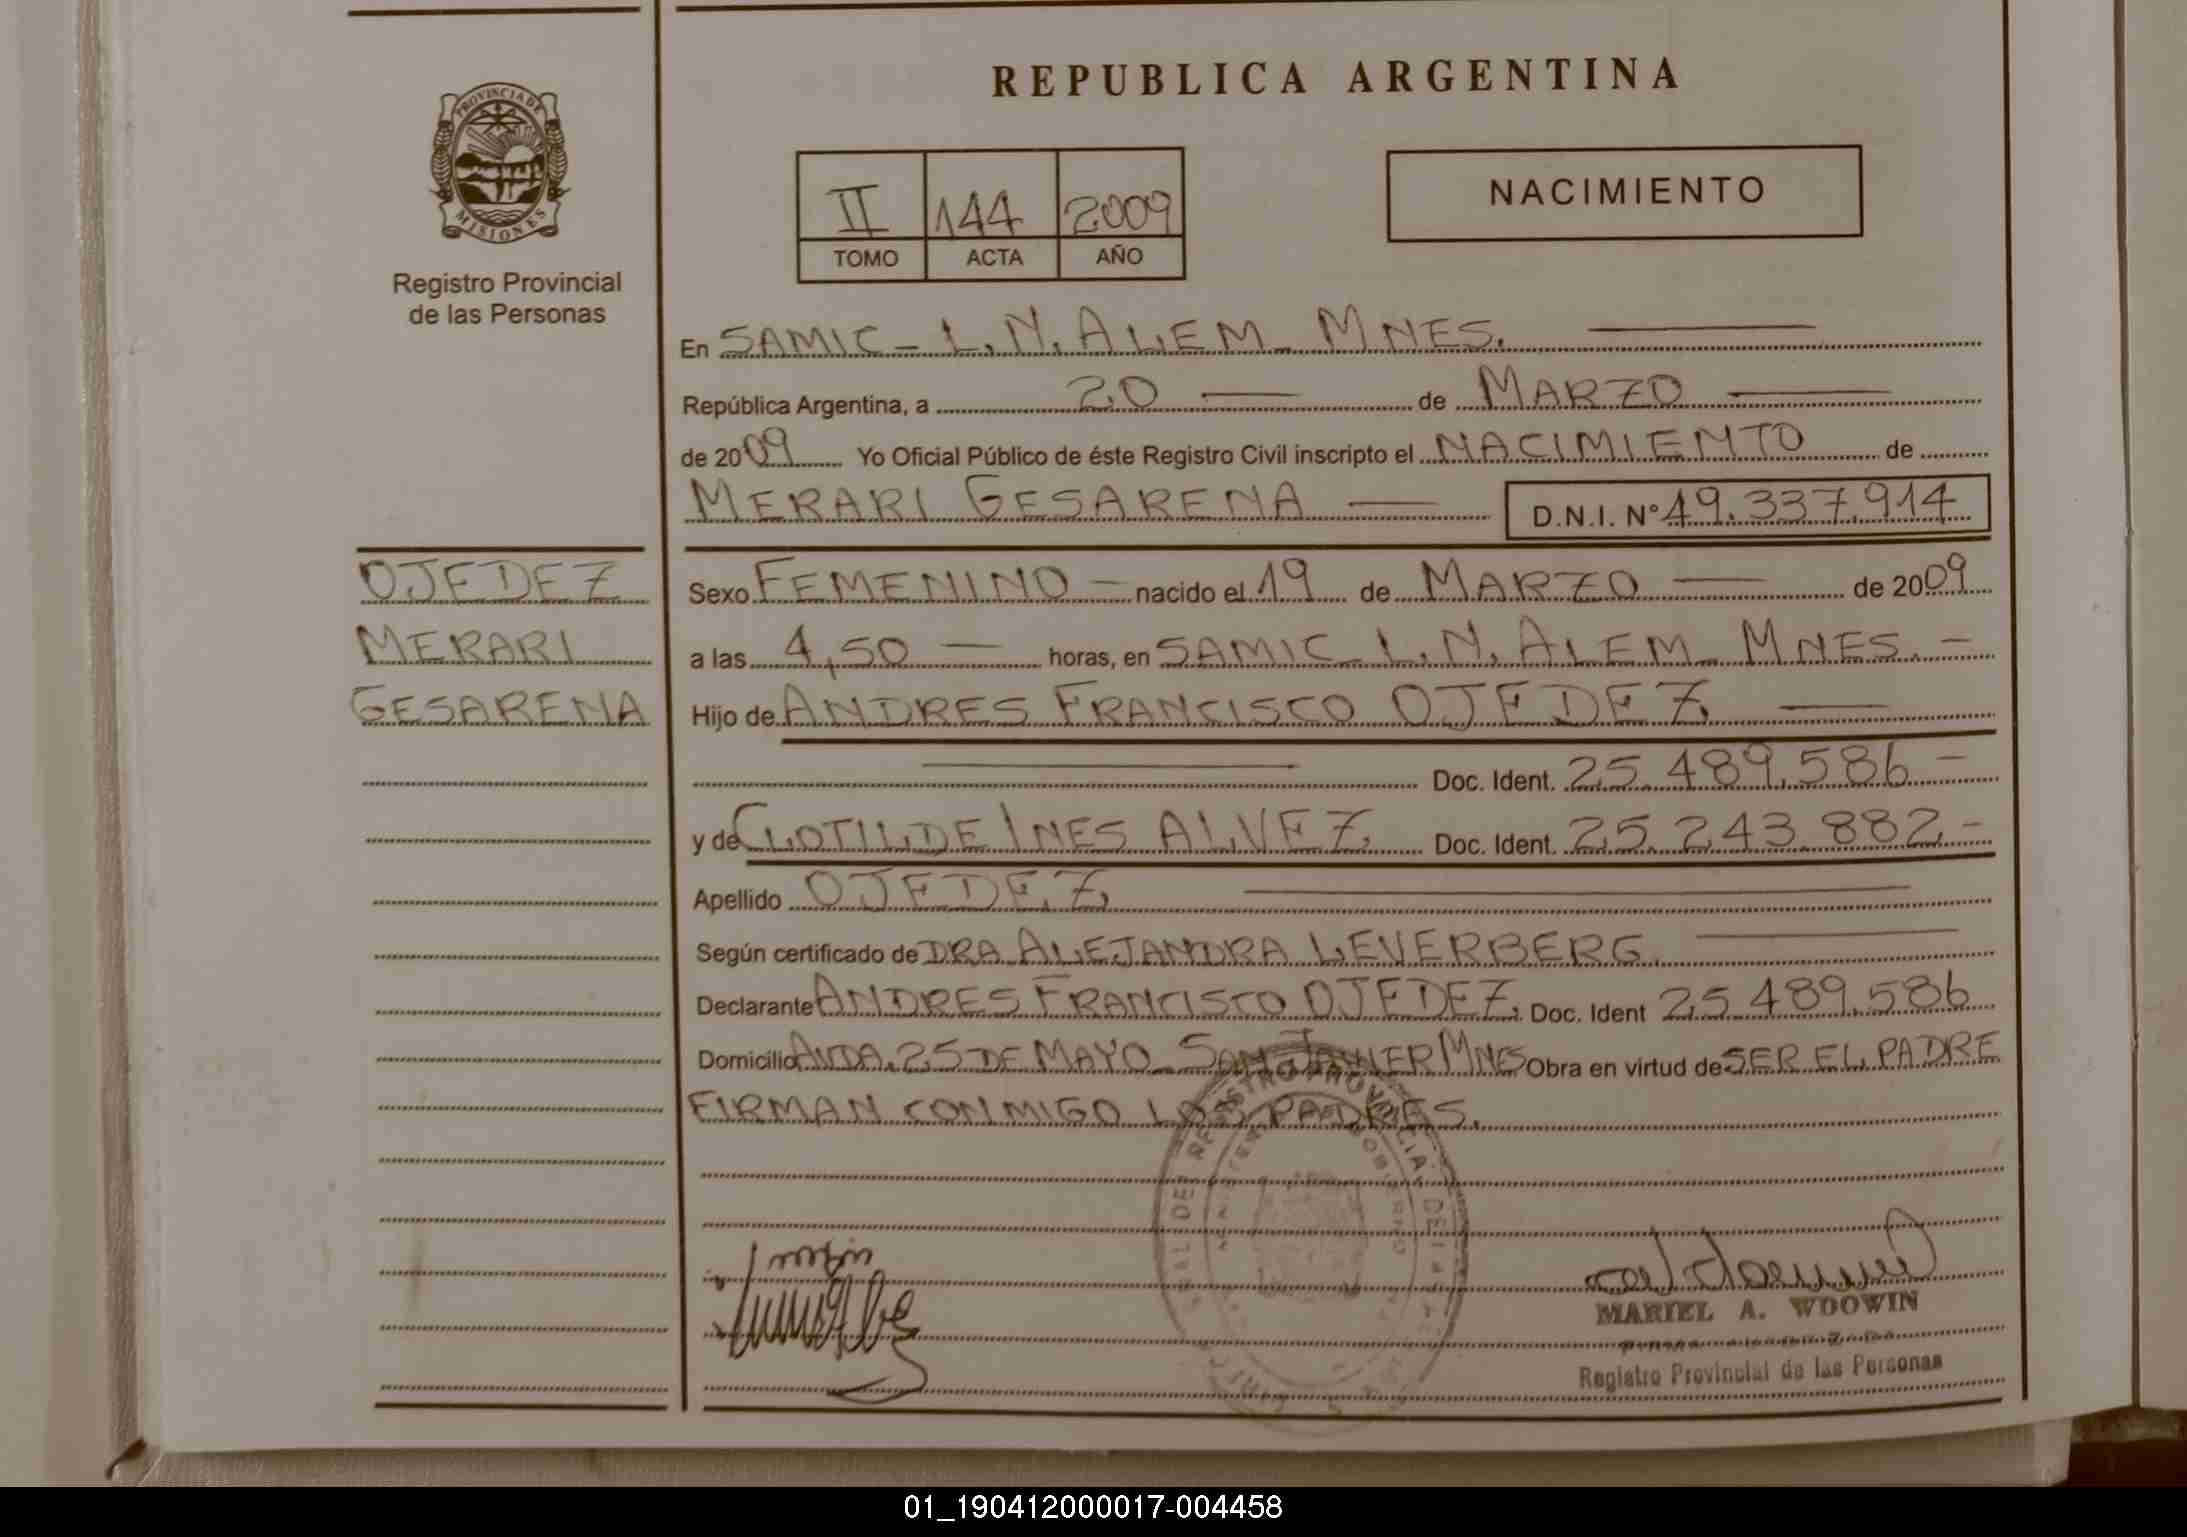 REPUBLICA ARGENTINA
PROVINCIA DE
MISIONES
Registro Provincial
de las Personas
II 144 2009
TOMO ACTA AÑO
NACIMIENTO
En SAMIC - L.N. ALEM - MNES.
República Argentina, a 20 de MARZO
de 2009 Yo Oficial Público de éste Registro Civil inscripto el NACIMIENTO de
MERARI GESARENA D.N.I. N° 49.337.914
OJEDEZ
MERARI
GESARENA
Sexo FEMENINO - nacido el 19 de MARZO de 2009
a las 4,50 horas, en SAMIC - L.N. ALEM - MNES. -
Hijo de ANDRES FRANCISCO OJEDEZ
Doc. Ident. 25.489.586 -
y de CLOTILDE INES ALVEZ Doc. Ident. 25.243.882 -
Apellido OJEDEZ
Según certificado de DRA ALEJANDRA LEVERBERG
Declarante ANDRES FRANCISCO OJEDEZ, Doc. Ident 25.489.586
Domicilio AVDA. 25 DE MAYO - SAN JAVIER MNES Obra en virtud de SER EL PADRE
FIRMAN CONMIGO LOS PADRES.
MARIEL A. WOOWIN
Registro Provincial de las Personas
01_190412000017-004458